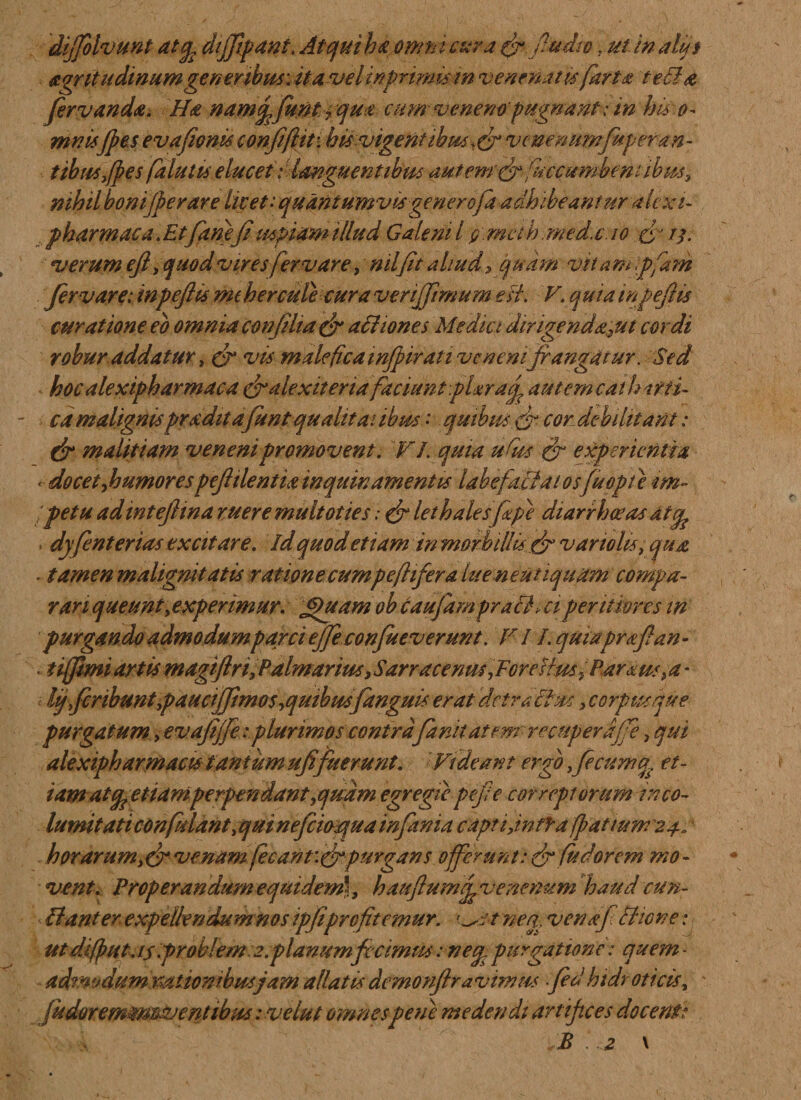 dissolvunt atq; dissipant. Atqui hæ omni cura & studio, ut in alijs
ægritudinum generibus: ita vel inprimis in venenatis sartæ tectæ
servandæ. Hæ namq; sunt, quæ cum veneno pugnant: in his o-
mnis spes evasionis consistit: his vigentibus, & venenum superan-
tibus, spes salutis elucet: languentibus autem & succumbentibus,
nihil boni sperare licet: quantumvis generosa adhibeantur alexi-
pharmaca. Et sane si uspiam illud Galeni l 9 meth. med. c. 10 & 13.
verum est, quod vires servare, nil sit aliud, quàm vitam ipsam
servare: in pestis mehercule cura verissimum est. V. quia in pestis
curatione eò omnia consilia & actiones Medici dirigendæ, ut cordi
robur addatur, & vis malefica inspirati veneni frangatur. Sed
hoc alexipharmaca & alexiteria faciunt: pleraq; autem catharti-
ca malignis prædita sunt qualitatibus: quibus & cor debilitant:
& malitiam veneni promovent. VI. quia usus & experientia
docet, humores pestilentiæ inquinamentis labefactatos suopte im-
petu ad intestina ruere multoties: & lethales sæpe diarrhœas atq;
dysenterias excitare. Id quod etiam in morbillis & variolis, quæ
tamen malignitatis ratione cum pestifera lue neutiquàm compa-
rari queunt, experimur. Quam ob causam practici peritiores in
purgando admodum parci esse consueverunt. VII. quia præstan-
tissimi artis magistri, Palmarius, Sarracenus, Forestus, Paræus, a-
lij, scribunt, paucissimos, quibus sanguis erat detractus, corpusque
purgatum, evasisse: plurimos contrà sanitatem recuperâsse, qui
alexipharmacis tantùm usi fuerunt. Videant ergò, secumq; et-
iam atq; etiam perpendant, quàm egregiè peste correptorum inco-
lumitati consulant, qui nescio qua insania capti, intra spatium 24.
horarum, & venam secant: & purgans offerunt: & sudorem mo-
vent. Properandum equidem, haustumq; venenum haud cun-
ctanter expellendum nos ipsi profitemur. At neq; venæ sectione:
ut disput. 15. problem. 2. planum fecimus: neq; purgatione: quem-
admodum rationibus jam allatis demonstravimus. sed hidroticis,
sudorem moventibus: velut omnes penè medendi artifices docent:
B 2